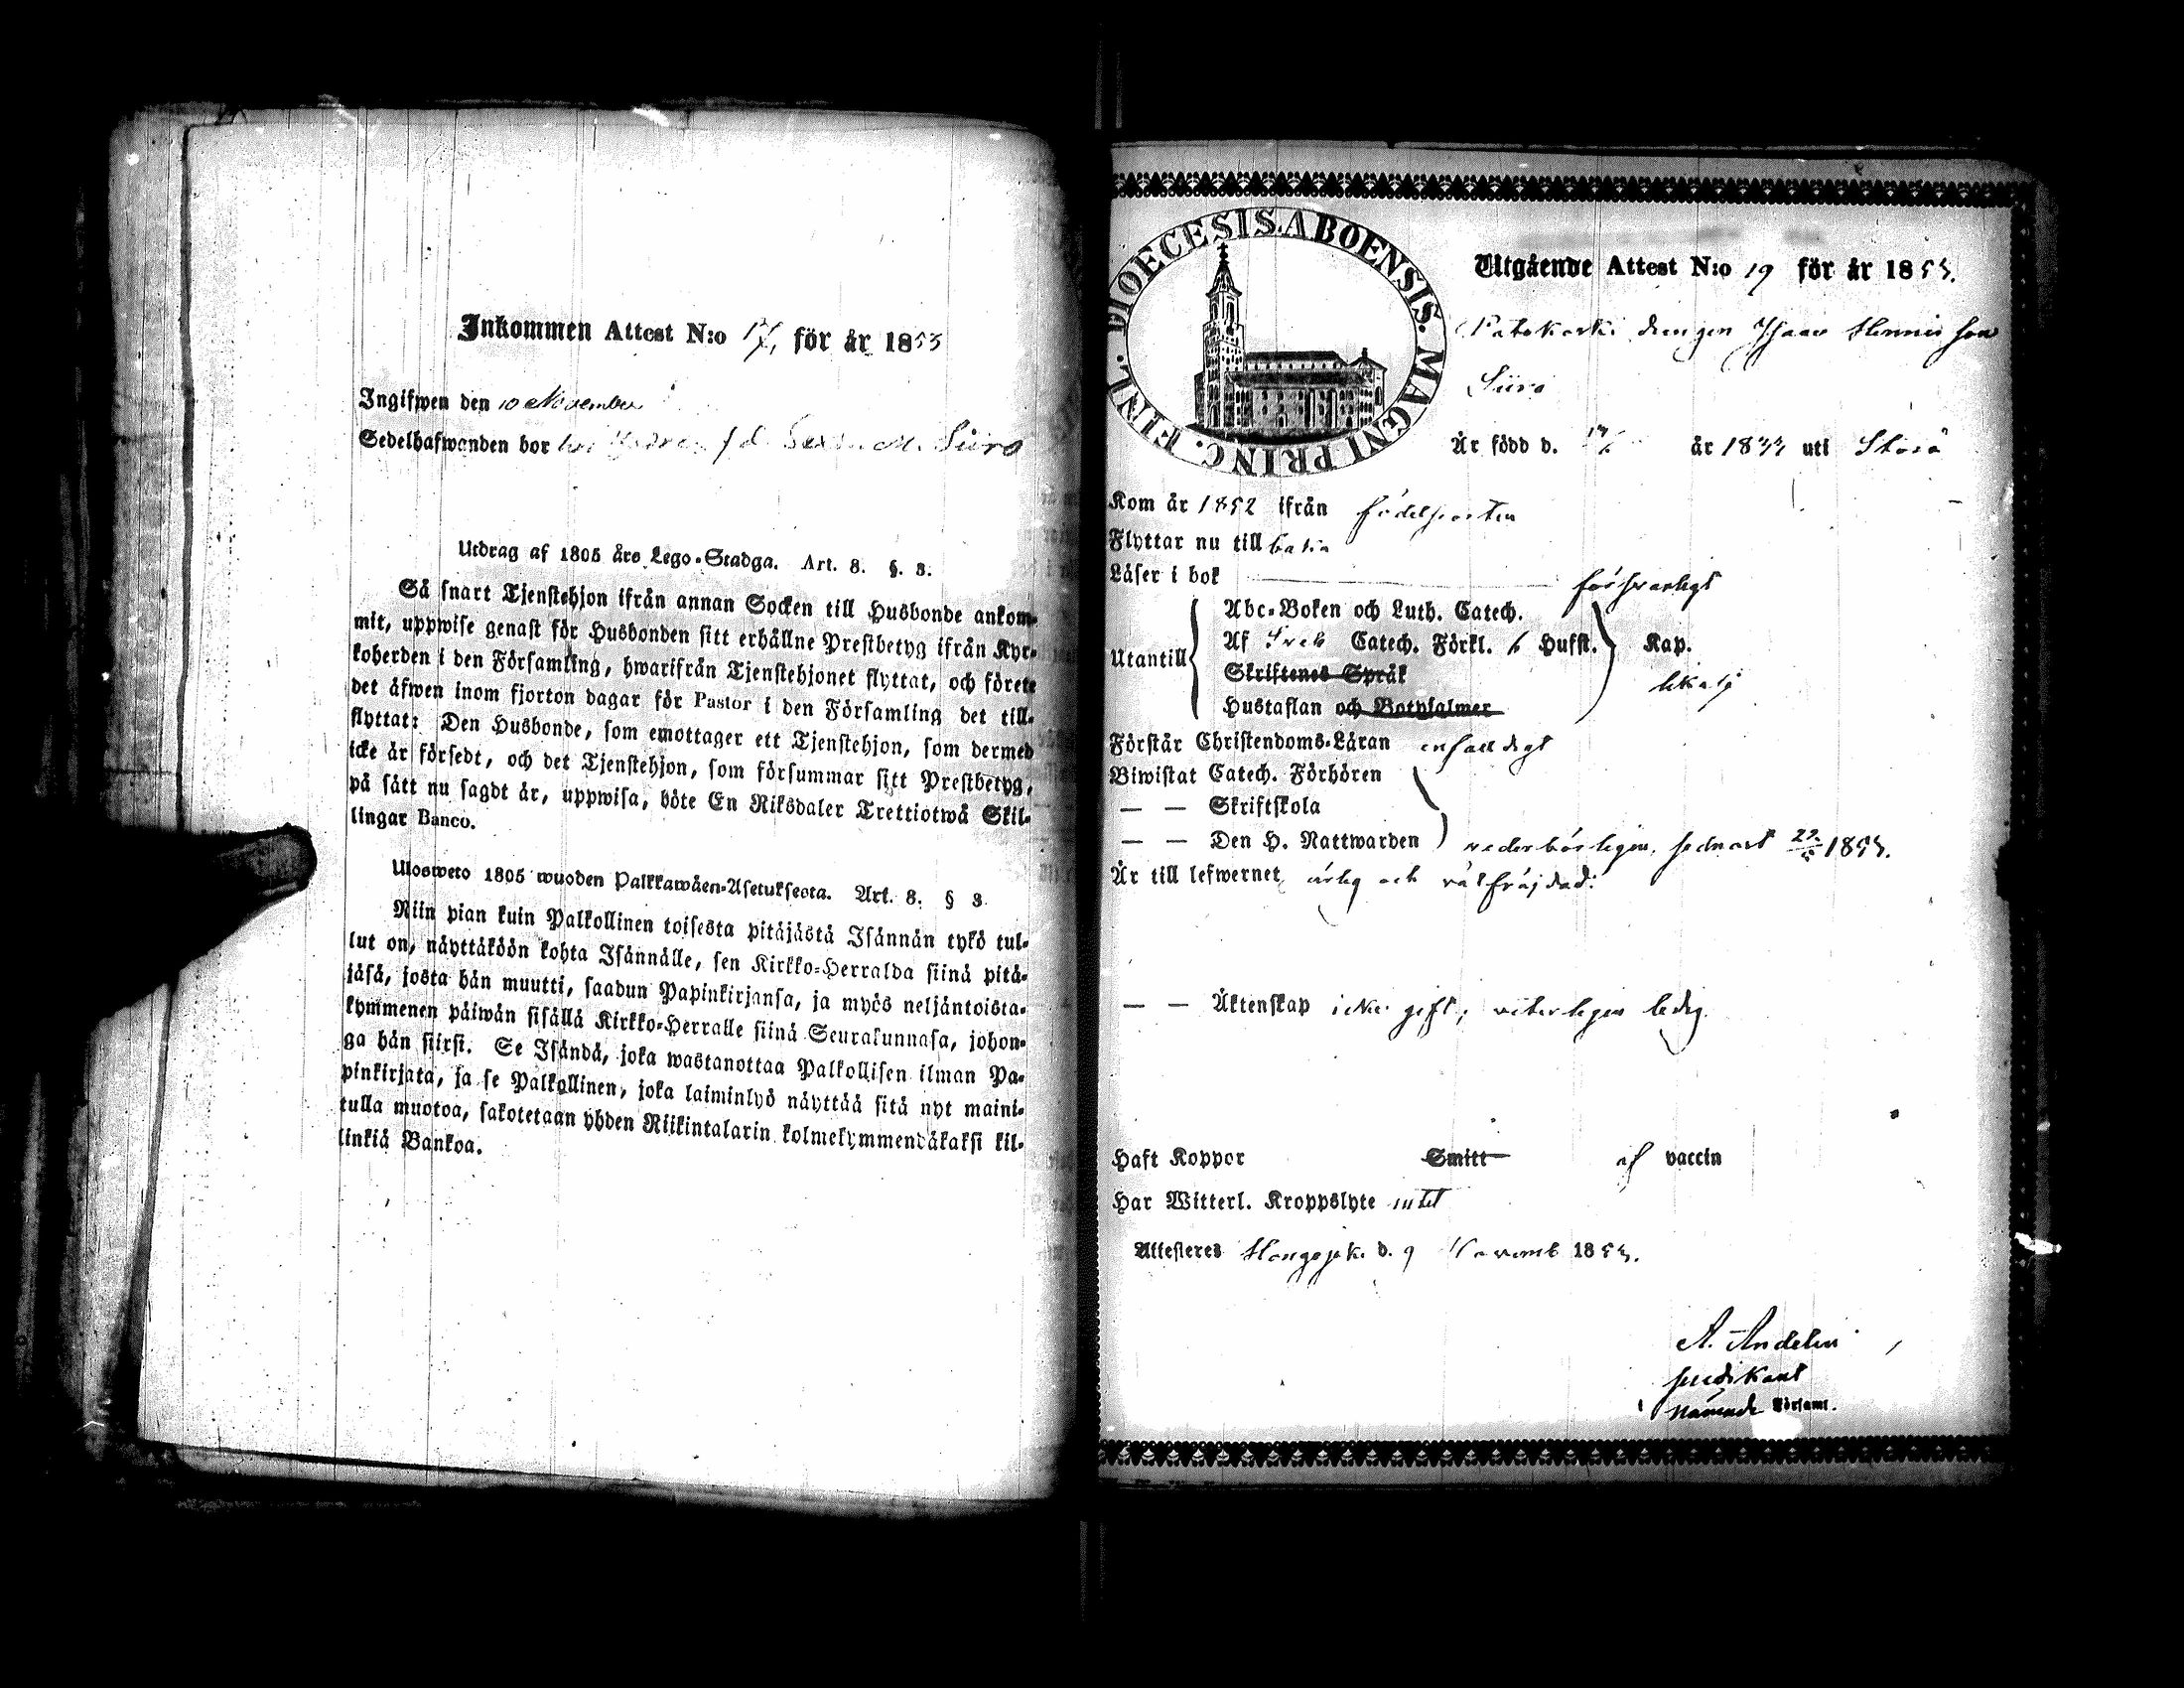 Inkommen Attest N:o 17, för år 1853
Ingifwen den 10 November
Sedelhafwanden bor hos f d Sexm. M. Siiro
Utdrag af 1805 års Lego-Stadga. Art. 8. §. 3.
Så snart Tjenstehjon ifrån annan Socken till Husbonde ankom-
mit, uppwise genast för Husbonden sitt erhållne Prestbetyg ifrån Kyr-
koherden i den Församling, hwarifrån Tjenstehjonet flyttat, och förete
det äfwen inom fjorton dagar för Pastor i den Församling det till-
flyttat: Den Husbonde, som emottager ett Tjenstehjon, som dermed
icke är försedt, och det Tjenstehjon, som försummar sitt Prestbetyg,
på sätt nu sagdt är, uppwisa, böte En Riksdaler Trettiotwå Skil-
lingar Banco.
Ulosweto 1805 wuoden Palkkawäen-Asetuksesta. Art. 8. § 3
Niin pian kuin Palkollinen toisesta pitäjästä Isännän tykö tul-
lut on, näyttäköön kohta Isännälle, sen Kirkko-Herralda siinä pitä-
jäsä, josta hän muutti, saadun Papinkirjansa, ja myös neljäntoista-
kymmenen päiwän sisällä Kirkko-Herralle siinä Seurakunnasa, johon-
ga hän siirsi. Se Isändä, joka wastanottaa Palkollisen ilman Pa-
pinkirjata, ja se Palkollinen, joka laiminlyö näyttää sitä nyt maini-
tulla muotoa, sakotetaan yhden Riikintalarin kolmekymmendäkaksi kil-
linkiä Bankoa.
DIOECESIS ABOENSIS. MAGNI PRINC. FINL.
Utgående Attest N:o 19 för år 1853.
drengen Isaac Henriksson
Siiro
Är född d. år 1833 uti Storå
Kom år 1852 ifrån födelseorten
Flyttar nu till
Läser i bok försvarligt
Abc-Boken och Luth. Catech.
Af Sveb Catech. Förkl. 6 Hufst. Kap.
Utantill
Skriftenes Språk
likaså
Hustaflan och Botpsalmer
Förstår Christendoms-Läran enfaldigt
Biwistat Catech. Förhören
— — Skriftskola
— — Den H. Nattwarden vederbörligen, sednast 29/5 1853.
Är till lefwernet ärlig och välfräjdad.
— — Äktenskap icke gift; veterligen ledig.
Haft Koppor Smitt af vaccin
Har Witterl. Kroppslyte intet
Attesteras Hongojoki d. 9 Novemb 1853.
A. Andelin
predikant
Församl.